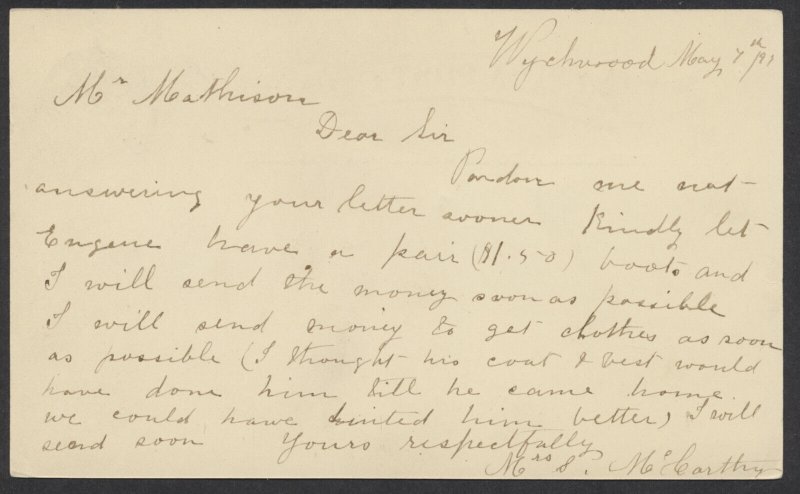 Wychwood May 7th /91
Mr Mathison
Dear Sir
Pardon me not
answering your letter sooner Kindly let
Eugene have a pair ($1.50) boots and
I will send the money soon as possible
I will send money to get clothes as soon
as possible (I thought his coat & vest would
have done him till he came home
we could have suited him better) I will
send soon Yours respectfully
Mrs S. McCarthy